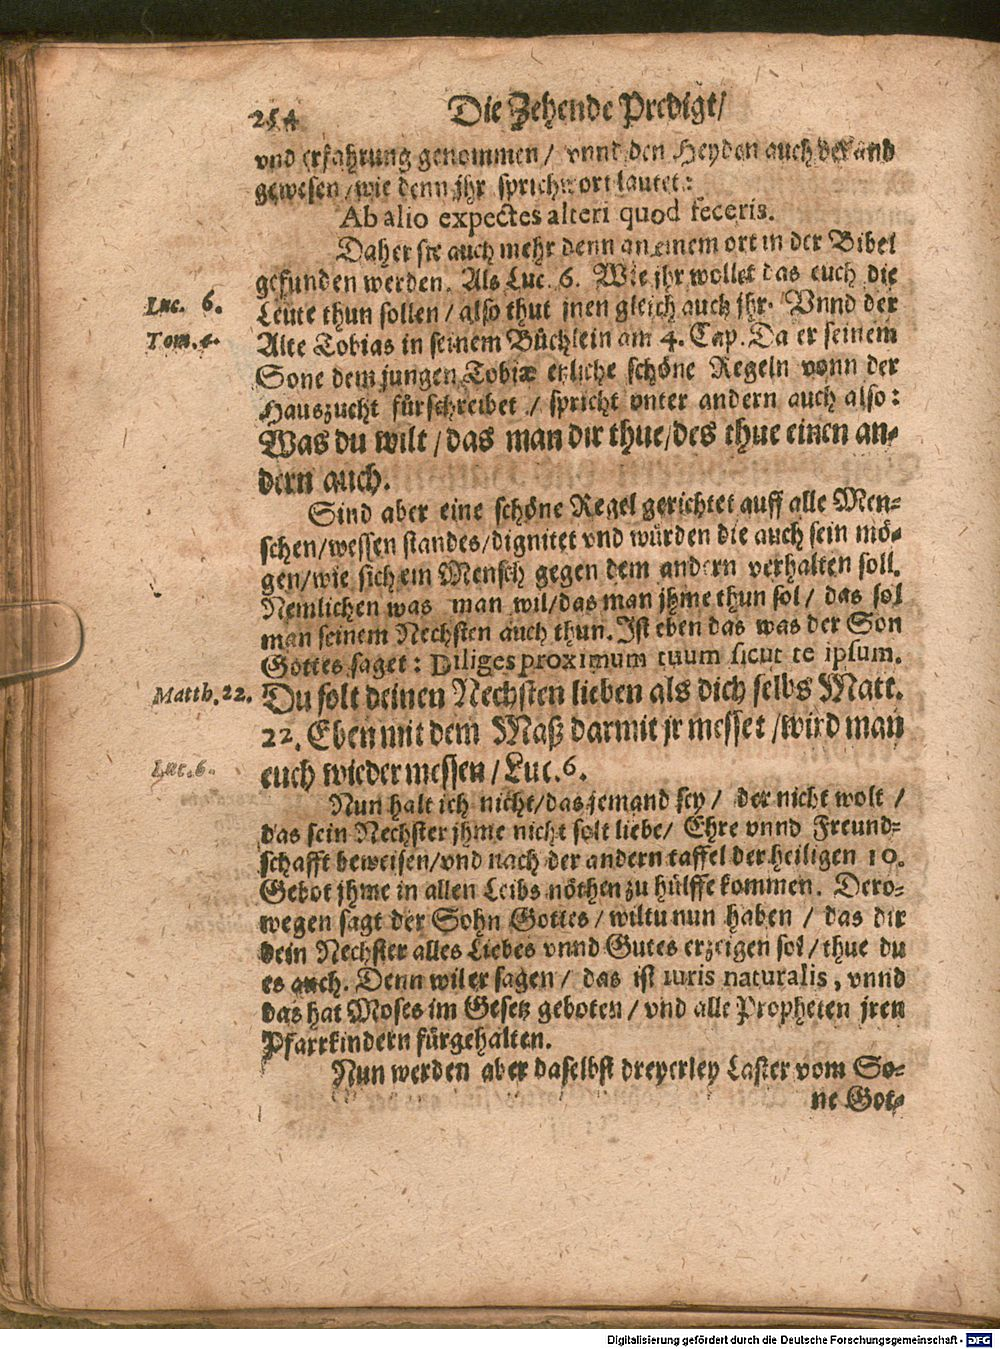 254
Die Zehende Predigt/
vnd erfahrung genommen / vnnd den Heyden auch bekand
gewesen / wie denn jhr sprichwort lautet:
Ab alio expectes alteri quod feceris.
Daher sie auch mehr denn an einem ort in der Bibel
gefunden werden. Als Luc. 6. Wie jhr wollet das euch die
Luc. 6.
Leute thun sollen / also thut jnen gleich auch jhr. Vnnd der
Alte Tobias in seinem Büchlein am 4. Cap. Da er seinem
Sone dem jungen Tobiæ etzliche schöne Regeln vonn der
Hauszucht fürschreibet / spricht vnter andern auch also:
Was du wilt / das man dir thue/des thue einen an-
dern auch.
Sind aber eine schöne Regel gerichtet auff alle Men-
schen/wessen standes/dignitet vnd würden die auch sein mö-
gen/wie sich ein Mensch gegen dem andern verhalten soll.
Nemlichen was man wil/das man jhme thun sol / das sol
man seinem Nechsten auch thun. Ist eben das was der Son
Gottes saget: Diliges proximum tuum sicut te ipsum.
Matth. 22.
Du solt deinen Nechsten lieben als dich selbs Matt.
22. Eben mit dem Maß darmit jr messet /wird man
Luc. 6.
euch wieder messen / Luc. 6.
Nun halt ich nicht/das jemand sey / der nicht wolt /
das sein Nechster jhme nicht solt liebe/ Ehre vnnd Freund-
schafft beweisen/vnd nach der andern taffel der heiligen 10.
Gebot jhme in allen Leibs nöthen zu hülffe kommen. Dero-
wegen sagt der Sohn Gottes / wiltu nun haben / das dir
dein Nechster alles Liebes vnnd Gutes erzeigen sol / thue du
es auch. Denn wil er sagen / das ist iuris naturalis, vnnd
das hat Moses im Gesetz geboten / vnd alle Propheten jren
Pfarrkindern fürgehalten.
Nun werden aber daselbst dreyerley Laster vom So-
ne Got-
Digitalisierung gefördert durch die Deutsche Forschungsgemeinschaft - DFG